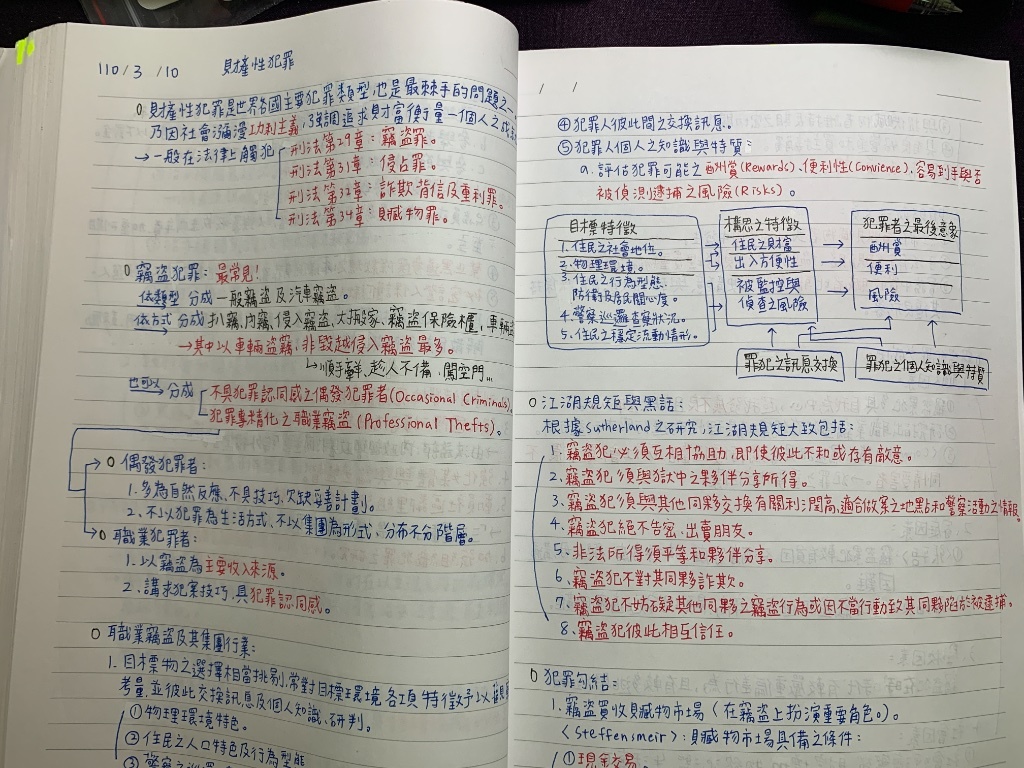 110/3/10 財產性犯罪
O 財產性犯罪是世界各國主要犯罪類型,也是最棘手的問題之
乃因社會瀰漫功利主義,強調追求財富衡量一個人之成
→一般在法律上觸犯
刑法第29章:竊盜罪。
刑法第31章:侵占罪。
刑法第32章:詐欺背信及重利罪。
刑法第34章:贓物罪。
O 竊盜犯罪:最常見!
依類型 分成一般竊盜及汽車竊盜。
依方式 分成扒竊,內竊,侵入竊盜,大搬家、竊盜保險櫃,車輛
→其中以車輛盜竊,非毀越侵入竊盜最多。
↳順手牽羊,趁人不備,闖空門...
也可以分成
不具犯罪認同感之偶發犯罪者(Occasional Criminals)
犯罪專精化之職業竊盜(Professional Thefts)。
O 偶發犯罪者:
1.多為自然反應、不具技巧,欠缺妥善計劃。
2.不以犯罪為生活方式、不以集團為形式、分布不分階層。
O 職業犯罪者:
1.以竊盜為主要收入來源。
2.講求犯案技巧,具犯罪認同感。
O 職業竊盜及其集團行業:
1.目標物之選擇相當挑剔,常對目標環境各項特徵予以
考量,並彼此交換訊息及個人知識、研判。
①物理環境特色。
②住民之人口特色及行為型態
③警察之巡
/ /
④犯罪人彼此間之交換訊息。
⑤犯罪人個人之知識與特質:
a.評估犯罪可能之酬賞(Rewards)、便利性(Convience),容易到手與否
被偵測逮捕之風險(Risks)。
目標特徵
1.住民之社會地位。
2.物理環境。
3.住民之行為型態、
防衛及居民關心度。
4.警察巡邏查察狀況。
5.住民之穩定流動情形。
構思之特徵
住民之財富
出入方便性
被監控與
偵查之風險
犯罪者之最後意象
酬賞
便利
風險
罪犯之訊息交換
罪犯之個人知識與特質
O 江湖規矩與黑話:
根據Sutherland之研究,江湖規矩大致包括:
1.竊盜犯必須互相協助,即使彼此不和或存有敵意。
2.竊盜犯須與獄中之夥伴分享所得。
3.竊盜犯須與其他同夥交換有關利潤高,適合做案之地點和警察活動之情報。
4.竊盜犯絕不告密、出賣朋友。
5.非法所得須平等和夥伴分享。
6.竊盜犯不對其同夥詐欺。
7.竊盜犯不妨礙其他同夥之竊盜行為或因不當行動致其同夥陷於被逮捕。
8.竊盜犯彼此相互信任。
O 犯罪勾結:
1.竊盜買收贓物市場(在竊盜上扮演重要角色。)。
<Steffensmeir>:贓物市場具備之條件:
①現金交易。